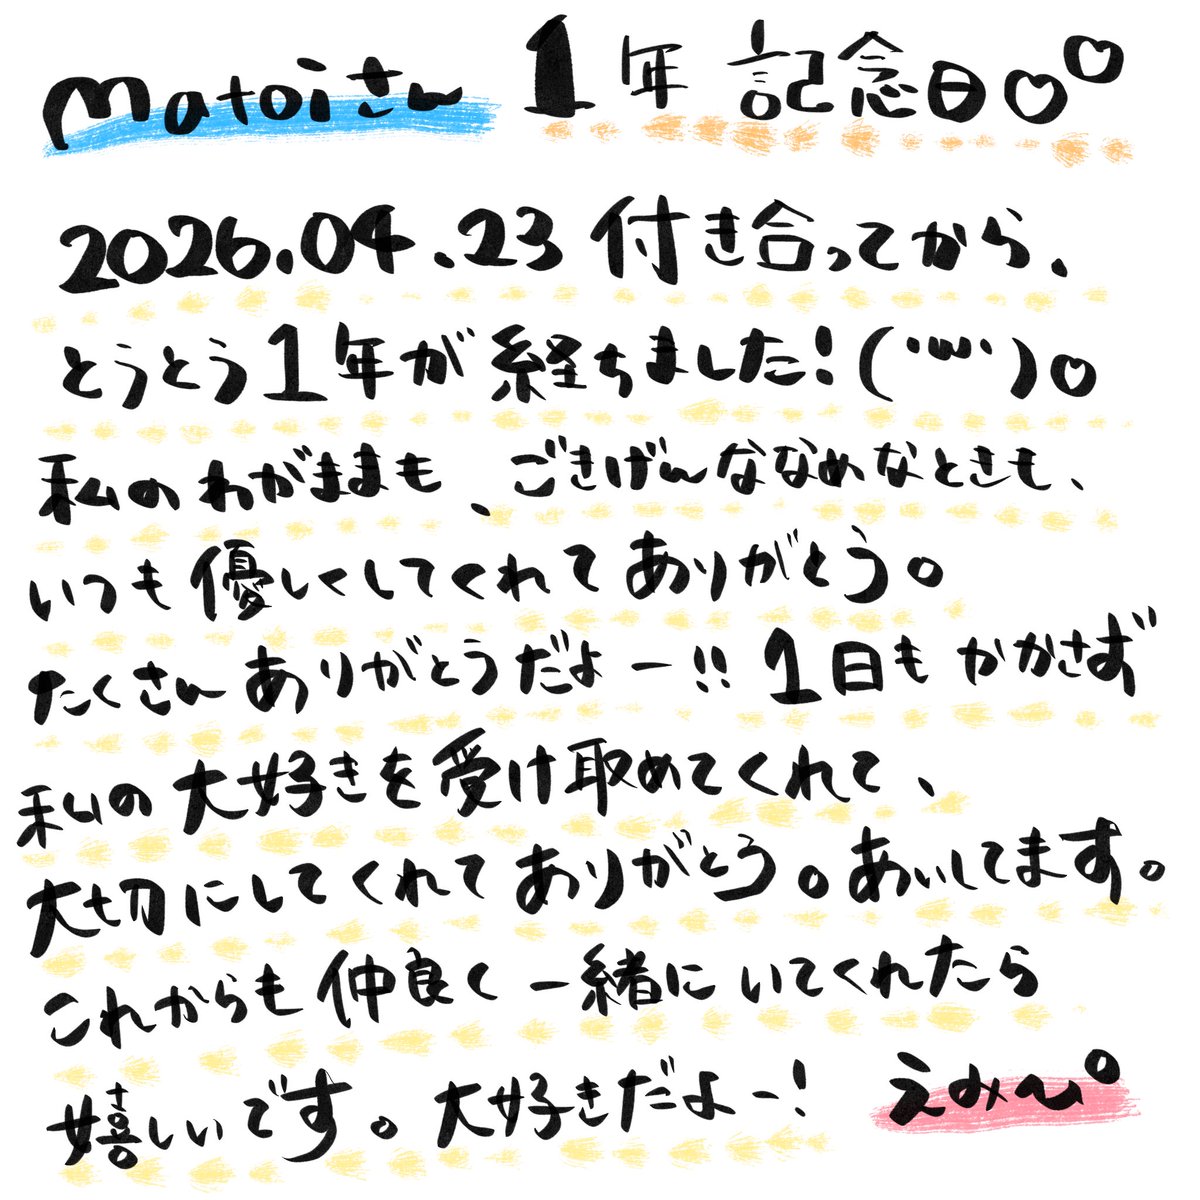 matoiさん 1年記念日♡♡
2026.04.23 付き合ってから、
とうとう1年が経ちました!(''ω'')♡
私のわがままも、ごきげんななめなときも、
いつも優しくしてくれてありがとう。
たくさんありがとうだよー!! 1日もかかさず
私の大好きを受け取めてくれて、
大切にしてくれてありがとう。あいしてます。
これからも仲良く一緒にいてくれたら
嬉しいです。大好きだよー!